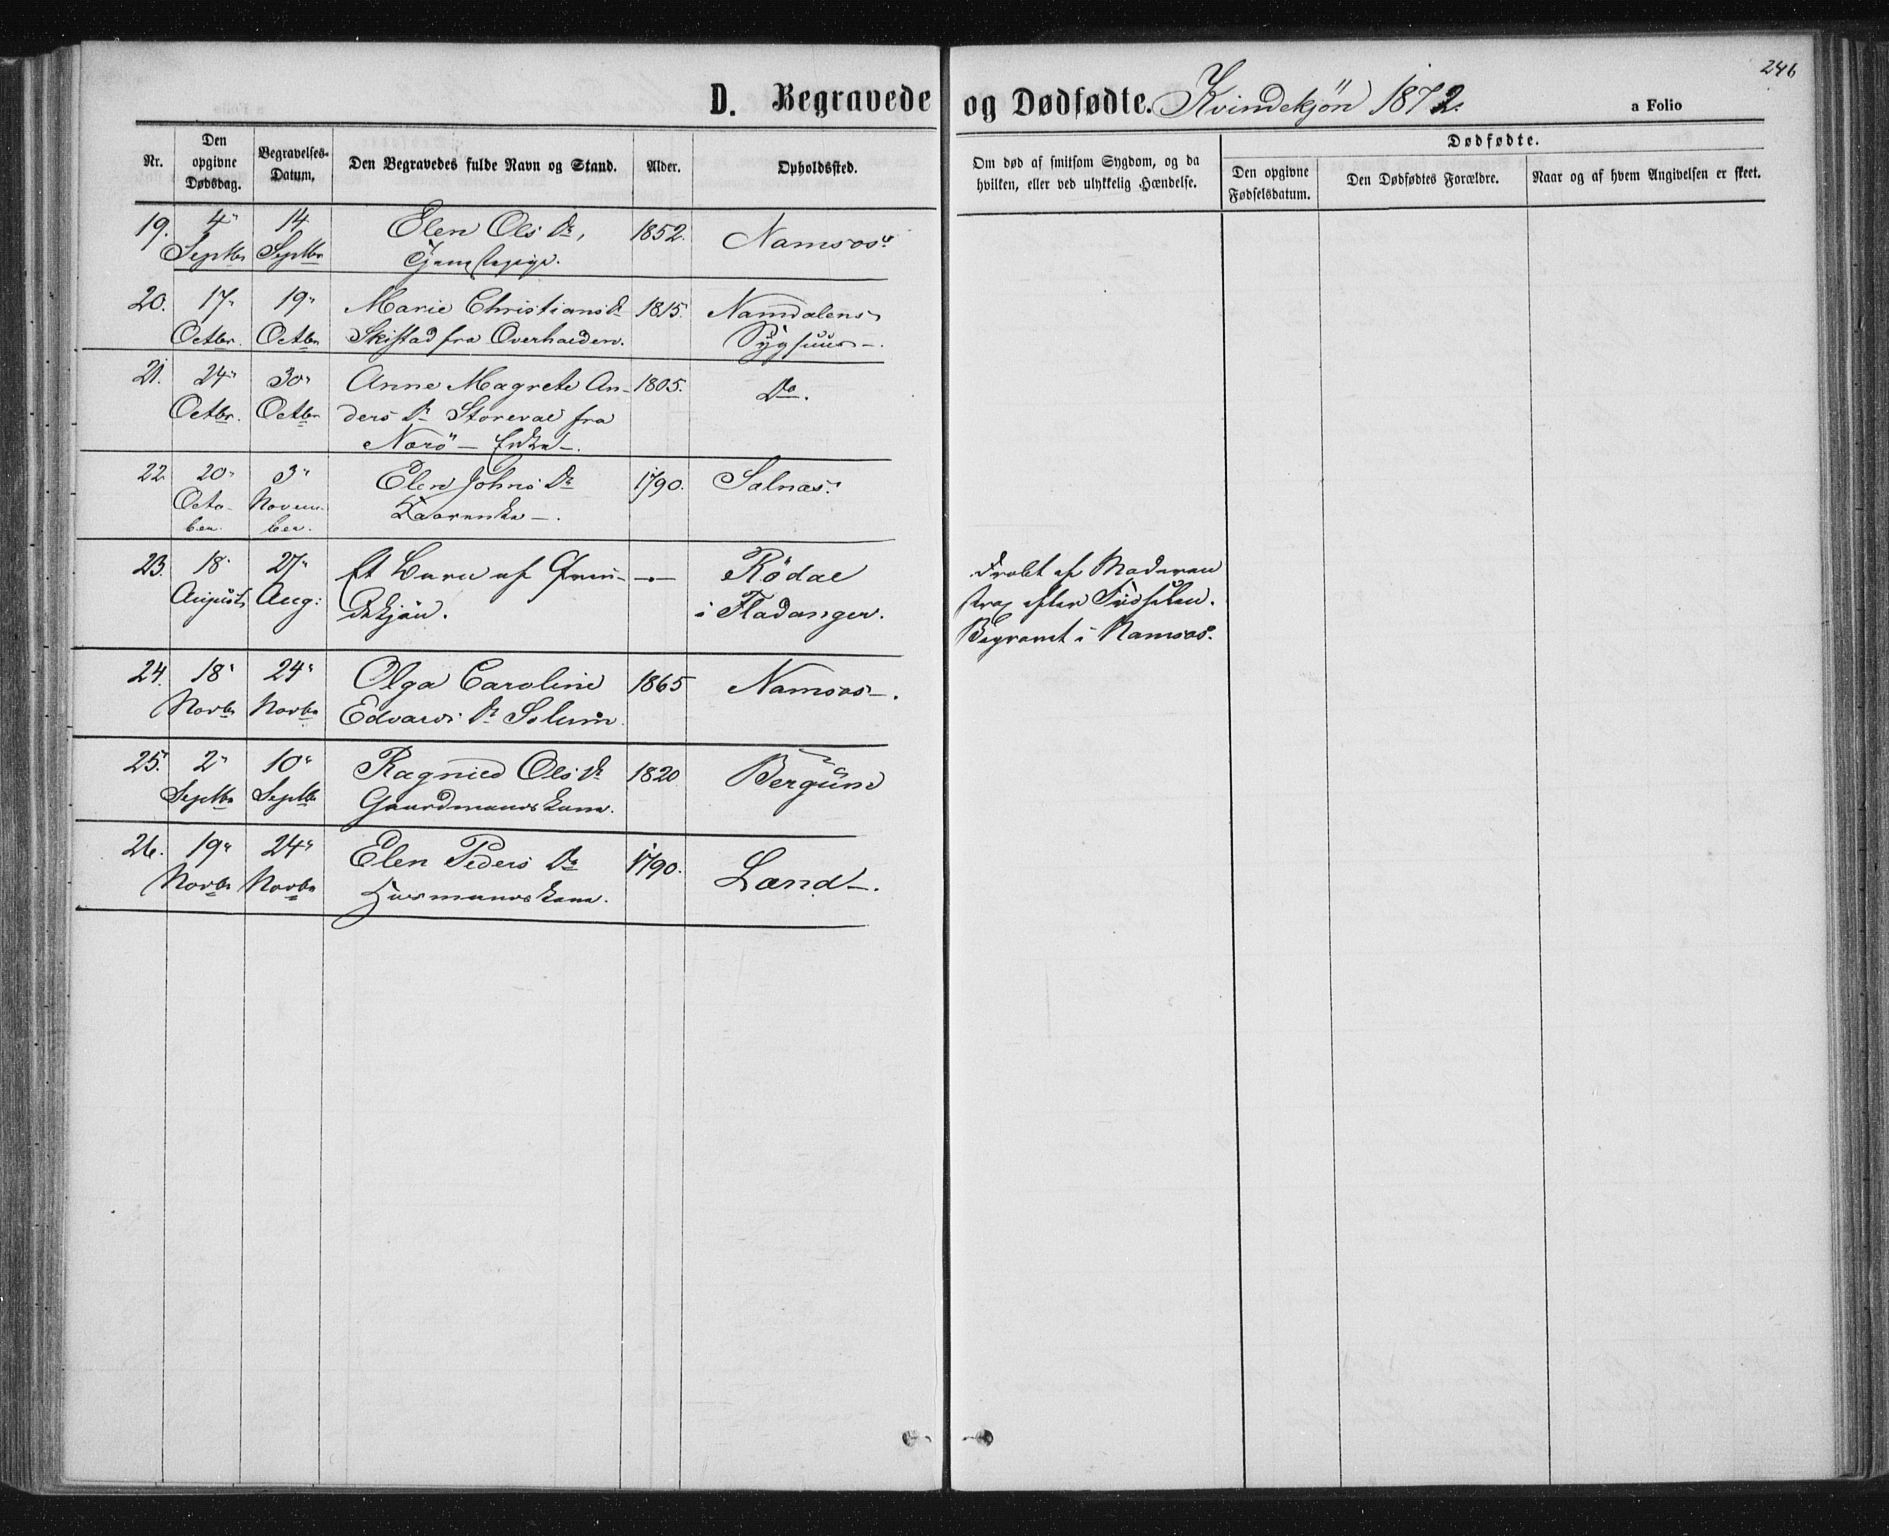 246
D. Begravede og Dødfødte. Kvindekjön 1872. a Folio
Nr. Den opgivne Dødsdag. Begravelses-Datum. Den Begravedes fulde Navn og Stand. Alder. Opholdssted. Om død af smitsom Sygdom, og da hvilken, eller ved ulykkelig Hændelse. Dødfødte.
Den opgivne Fødselsdatum. Den Dødfødtes Forældre. Naar og af hvem Angivelsen er skeet.
19. 4 14 Elen Ols Dr, 1852. Namsos.
Septbr Septbr Tjenestepige.
20. 17 19 Marie Christians Dr 1815. Namdalens
Octbr. Octbr Skistad fra Overhalden. Sygehuus.
21. 24 30 Anne Magrete An- 1805. Do.
Octbr. Octbr ders Dr Storeval fra
Nærö - Enke.
22 20 3 Elen Johns Dr 1790. Salnæs.
Octo- Novem-
ber. ber.
23. 18 27 Et Barn af Qvin- Rödal
August Aug: dekjön. i Fladanger.
Dræbt af Moderen
strax efter Födselen.
Begravet i Namsos.
24. 18 24 Olga Caroline 1865 Namsos.
Novbr Novbr Edvards Dr Solum.
25. 2 10 Ragnild Ols Dr 1820
Septbr Septbr Gaardmandskone.
26. 19 24 Elen Peders Dr 1790. Land.
Novbr Novbr Husmandskone.